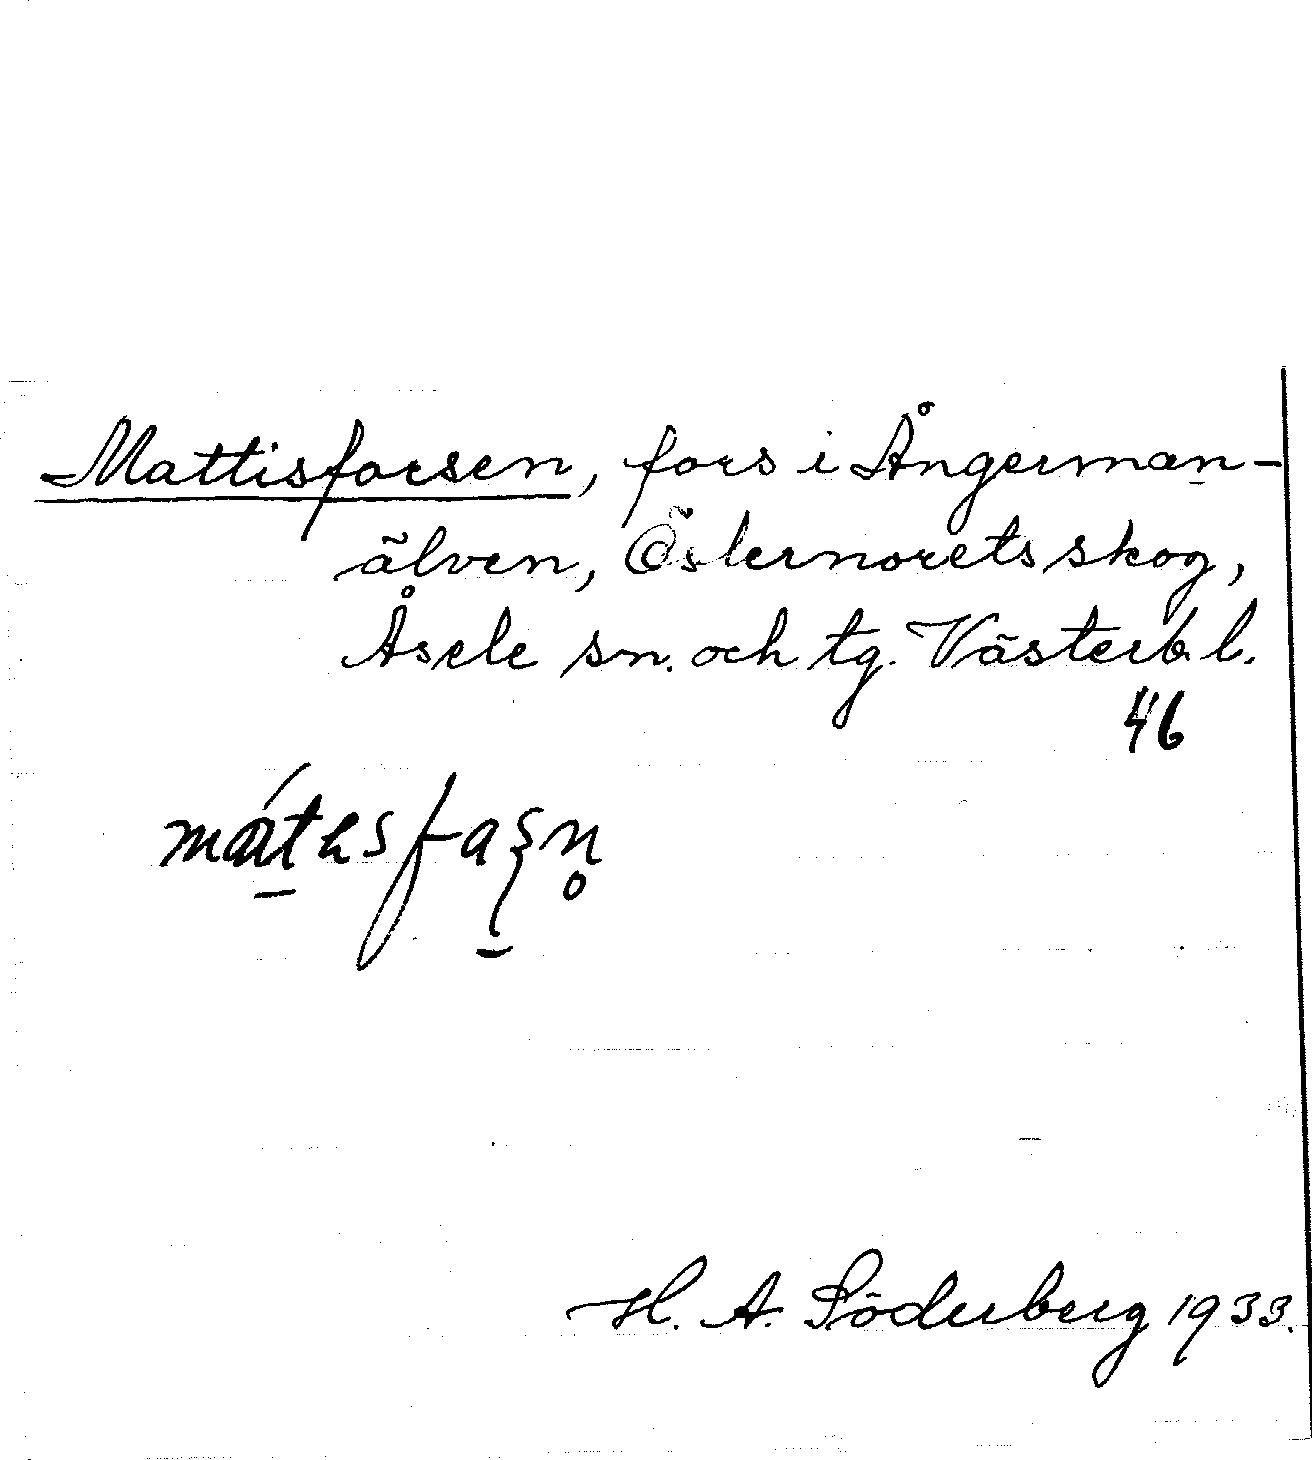 Mattisforsen, fors i Ångerman-
älven, Östernorets skog,
Åsele sn. och tg. Västerb. l.
46
H. A. Söderberg 1933.